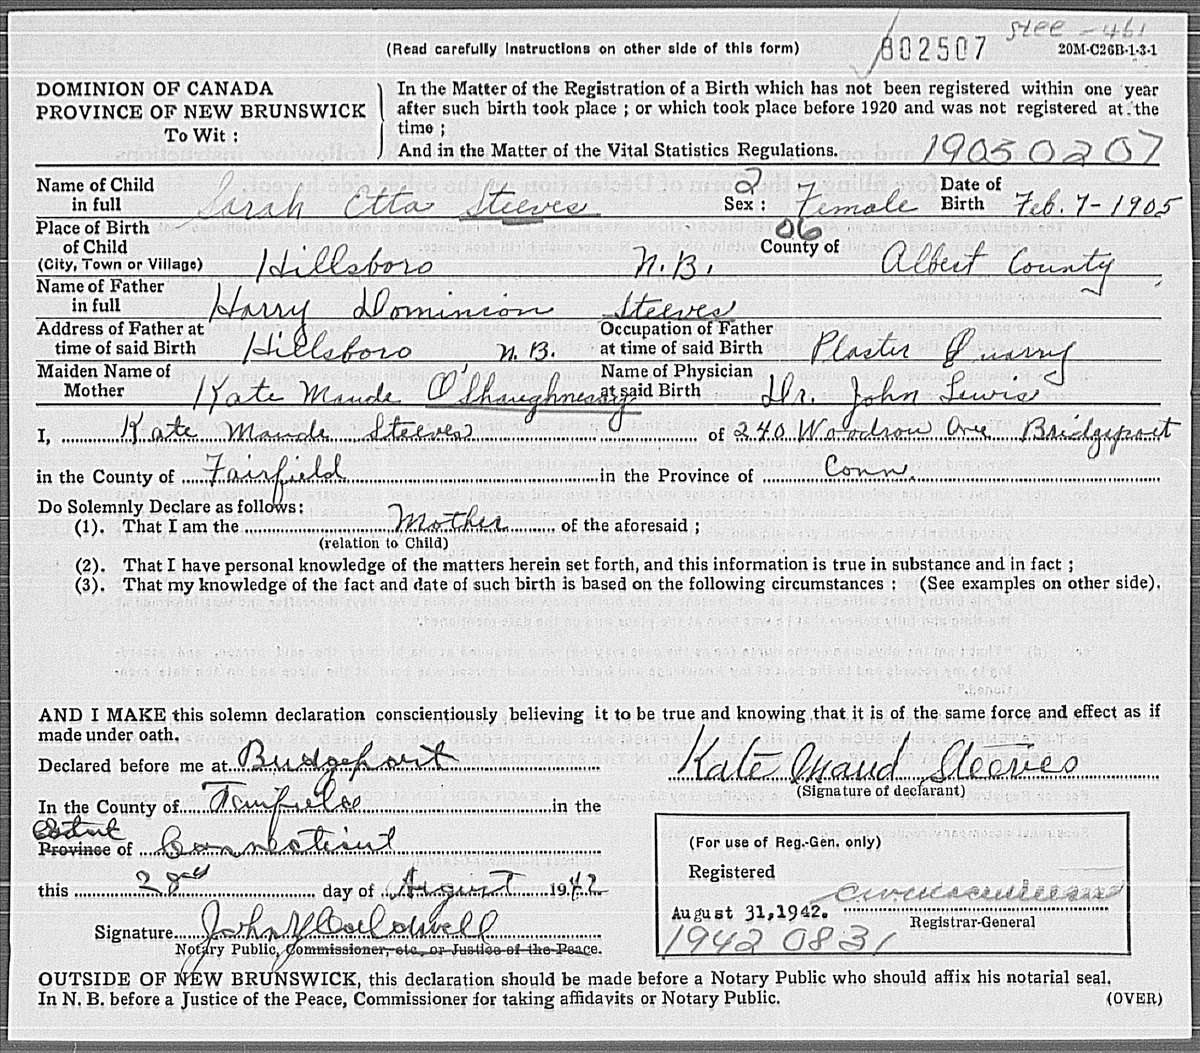 stee - 461
(Read carefully Instructions on other side of this form) 802507 20M-C26B-1-3-1
DOMINION OF CANADA
PROVINCE OF NEW BRUNSWICK
To Wit :
In the Matter of the Registration of a Birth which has not been registered within one year
after such birth took place ; or which took place before 1920 and was not registered at the
time ;
And in the Matter of the Vital Statistics Regulations. 19050207
Name of Child in full Sarah Etta Steeves 2 Sex : Female Date of Birth Feb. 7 - 1905
Place of Birth of Child (City, Town or Village) Hillsboro N.B. 06 County of Albert County
Name of Father in full Harry Dominion Steeves
Address of Father at time of said Birth Hillsboro N.B. Occupation of Father at time of said Birth Plaster Quarry
Maiden Name of Mother Kate Maude O'Shaughnessy Name of Physician at said Birth Dr. John Lewis
I, Kate Maude Steeves of 240 Woodrow Ave Bridgeport
in the County of Fairfield in the Province of Conn.
Do Solemnly Declare as follows:
(1). That I am the Mother of the aforesaid ;
(relation to Child)
(2). That I have personal knowledge of the matters herein set forth, and this information is true in substance and in fact ;
(3). That my knowledge of the fact and date of such birth is based on the following circumstances : (See examples on other side).
AND I MAKE this solemn declaration conscientiously believing it to be true and knowing that it is of the same force and effect as if
made under oath.
Declared before me at Bridgeport Kate Maud Steeves
(Signature of declarant)
In the County of Fairfield in the
Province of Connecticut
(For use of Reg.-Gen. only)
Registered
this day of August 1942
August 31, 1942.
Registrar-General
Signature John Y Caldwell
1942 0831
Notary Public, Commissioner, etc., or Justice of the Peace.
OUTSIDE OF NEW BRUNSWICK, this declaration should be made before a Notary Public who should affix his notarial seal.
In N. B. before a Justice of the Peace, Commissioner for taking affidavits or Notary Public. (OVER)